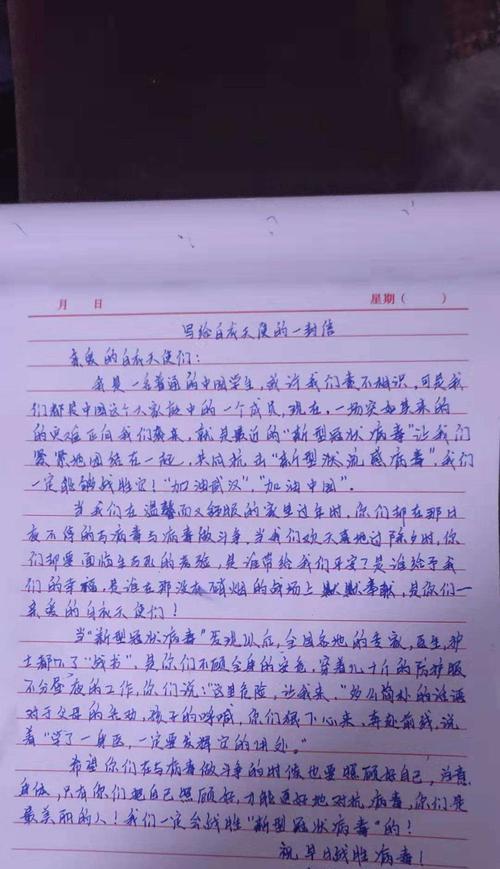 月 日 星期( )
写给白衣天使的一封信
亲爱的白衣天使们:
我是一名普通的中国学生,或许我们素不相识,可是我
们都是中国这个大家庭中的一个成员,现在,一场突如其来的
的灾难正向我们袭来,就是最近的"新型冠状病毒"让我们
紧紧地团结在一起,共同抗击"新型 状流感病毒",我们
一定能够战胜它!"加油武汉","加油中国"。
当我们在温馨而又舒服的家里过年时,你们却在那日
夜不停的与病毒与病毒做斗争,当我们欢天喜地过除夕时,你
们却要面临生与死的考验,是谁带给我们平安?是谁给予我
们的幸福,是谁在那没有硝烟的战场上默默奉献,是你们—
亲爱的白衣天使们!
当"新型冠状病毒"发现以后,全国各地的专家,医生,护
士都 了"战书",是你们不顾全身的安危,穿着几十斤的防护服
不分昼夜的工作,你们说:"这里危险,让我来," 简朴的话语
对于父母的 ,孩子的呼喊,你们狠下心来,奔赴前线,说
着"学了一身医,一定要发挥它的用处。"
希望你们在与病毒做斗争的时候也要照顾好自己,注意
身体,只有你们把自己照顾好,才能更好地对抗病毒,你们是
最美丽的人!我们一定会战胜"新型冠状病毒"的!
祝早日战胜病毒!